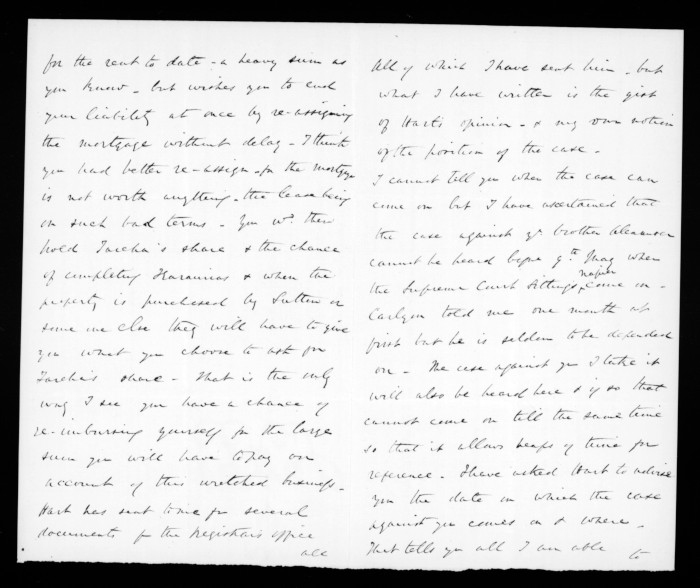 for the rent to date - a heavy sum as
you know - but wishes you to end
your liability at once by re-assigning
the mortgage without delay - I think
you had better re-assign - for the mortgage
is not worth anything - the lease being
on such bad terms - You wd. then
hold Tareha's share & the chance
of completing Harawira's & when the
property is purchased by Sutton or
some one else they will have to give
you what you choose to ask for
Tareha's share - That is the only
way I see you have a chance of
re-imbursing yourself for the large
sum you will have to pay on
account of this wretched business -
Hart has sent to me for several
documents fr the Registrars office
all
All of which I have sent him - but
what I have written is the gist
of Hart's opinion - & my own notion
of the position of the case -
I cannot tell you when the case can
come on but I have ascertained that
the case against yr brother Alexander
cannot be heard before 9th May when
the Supreme Court Sittings Napier come on -
Carlyon told me one month at
first but he is seldom to be depended
on - The case against you I take it
will also be heard here & if so that
cannot come on till the same time
so that it allows heaps of time for
reference - I have asked Hart to advise
you the date on which the case
against you comes on & where -
That tells you all I am able
to